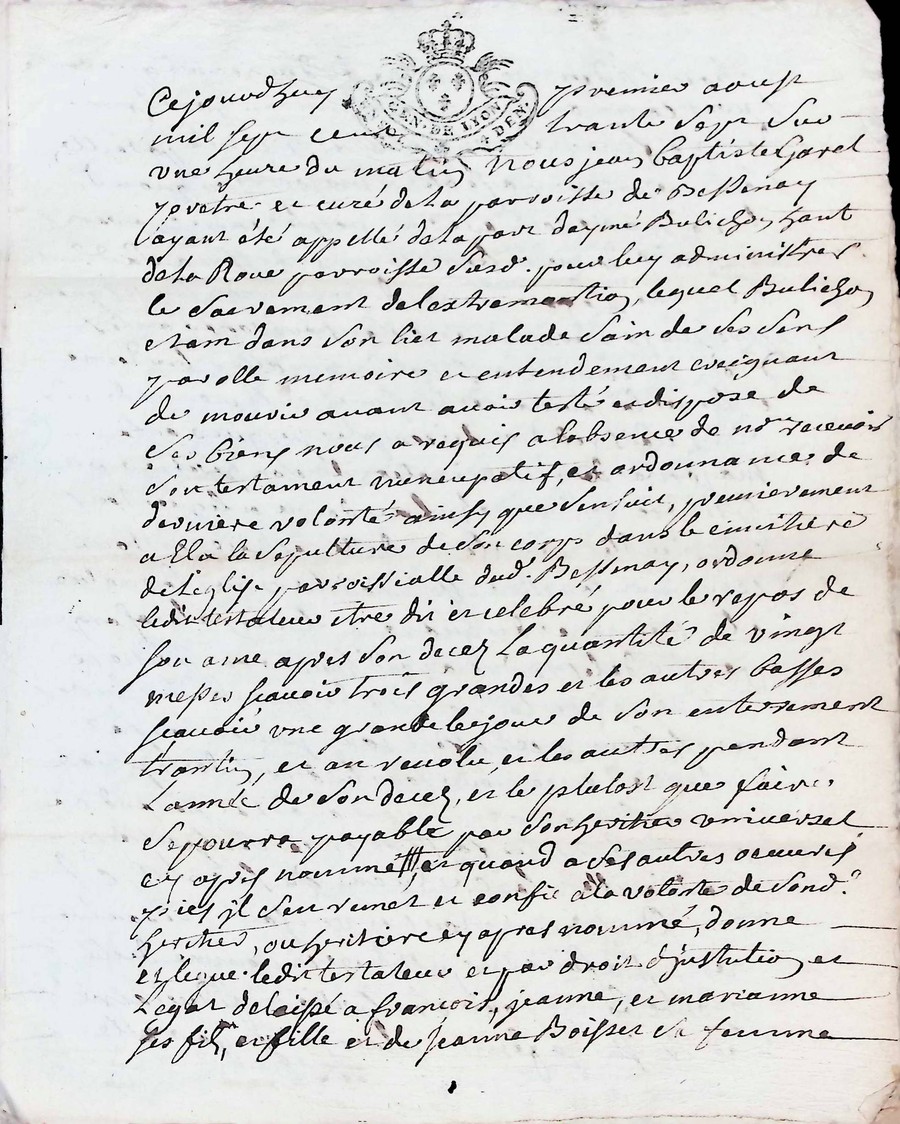 Cejourdhuy premier aoust
GEN. DE LYON DEN.
mil sept cent trante sept sur
une heure du matin nous jean baptiste Garel
pretre et curé de la parroisse de Bessenay
ayant été appellé de la part daymé Bulichon, haut
de la Roue parroisse susd. pour luy administrer
le sacrement delextremontion, lequel Bulichon
etant dans son liet malade sain de ses sens
parolle memoire et entendement creignant
de mourir avant avoir testé et dispose de
ses biens nous a requis alabsence de nore recevoir
son testament nuncupatif, et ordonnance de
derniere volonté ainsy que sensuit, premierement
a Elû la sepulture de son corps dans le cimitiere
de leglise parroissialle dud. Bessenay, ordonne
ledit testateur etre dit et celebré pour le repos de
son ame apres son decez la quantité de vingt
messes scavoir trois grandes et les autres basses
scavoir une grande lejour de son enterrement
trantin, et an revolu, et les autres pendant
Lannée de son decez, et le plutost que faire
se pourra payable par son heritier universel
cy apres nommé, et quand a ses autres oeuvres
pies jl sen remet et confie a la volonté de sond.
heritier, ou heritiere cy apres nommé, donne
et legue ledit testateur et par droit djnstitution et
Legat delaissé a francois, jeanne, et marianne
ses fils, et fille et de jeanne Boisset sa femme